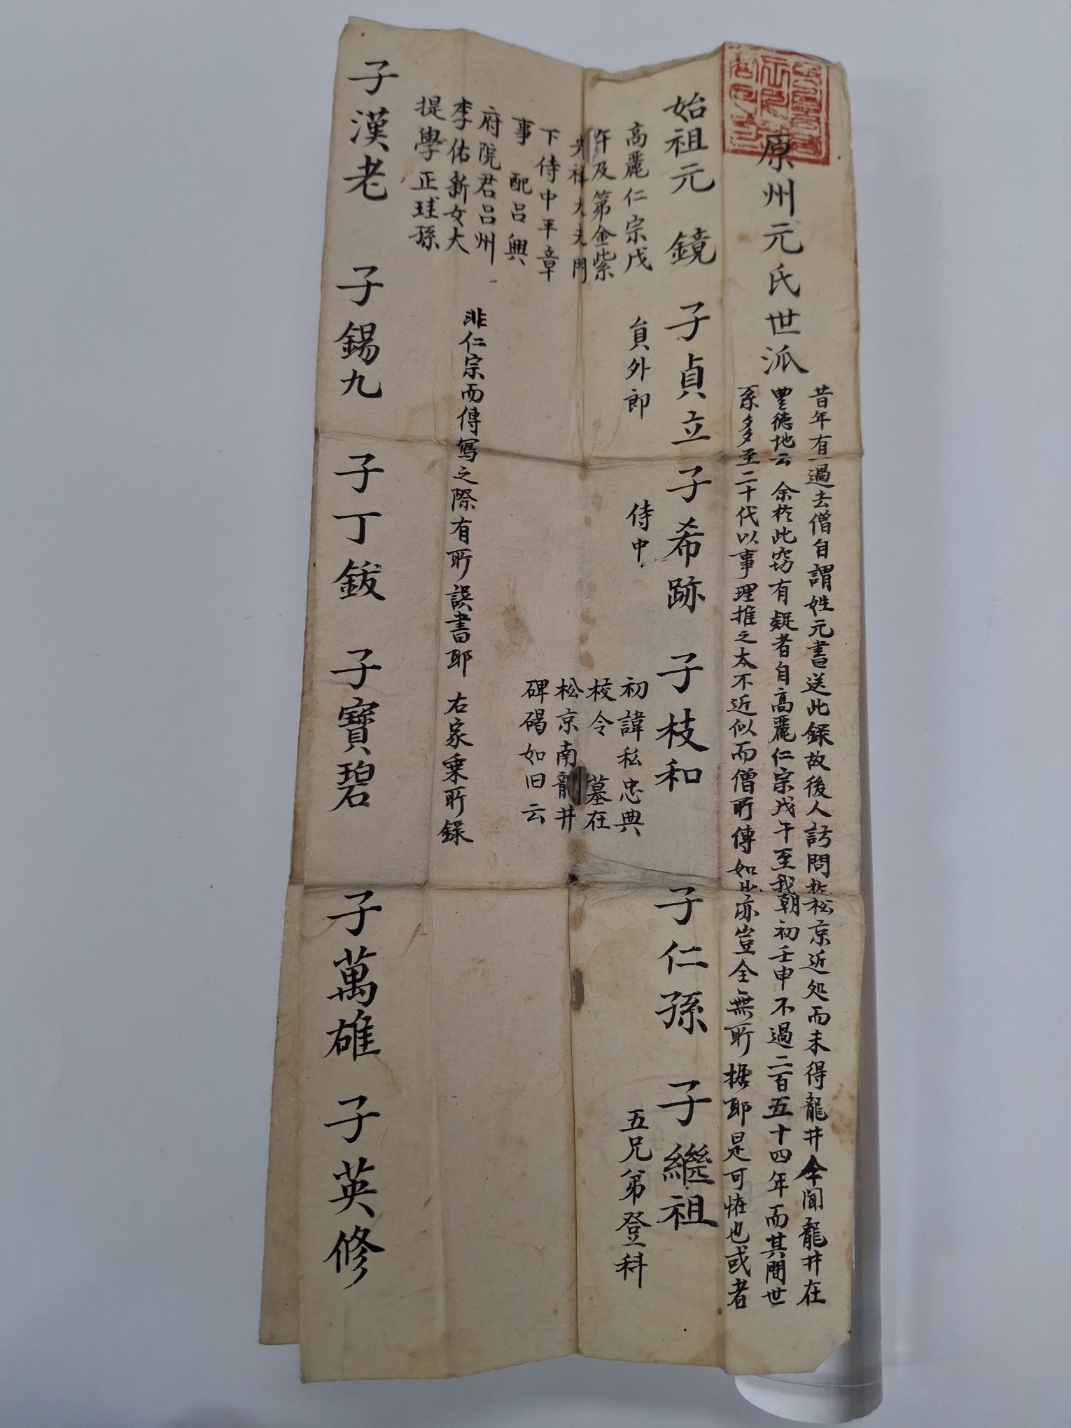 原州元氏世派
昔年有一過去僧自謂姓元書送此錄故後人訪問於松京近処而未得龍井今聞龍井在
豊德地云 余於此窃有疑者自高麗仁宗戊午至我朝初壬申不過二百五十四年而其間世
系多至二十代以事理推之太不近似而僧所傳如此亦豈全無所據耶是可怪也或者
始祖元 鏡 子貞立 子希跡 子枝和 子仁孫 子繼祖
高麗仁宗戊
午及第金紫
光祿大夫門
下侍中平章
事 配呂興
府院君呂州
李佑新女大
提學正珪孫
員外郎
侍中
初諱私忠典
校令 墓在
松京南龍井
碑碣如旧云
五兄弟登科
非仁宗而傳寫之際有所誤書耶 右家乗所錄
子漢老 子錫九 子丁鈸 子寶碧 子萬雄 子英修